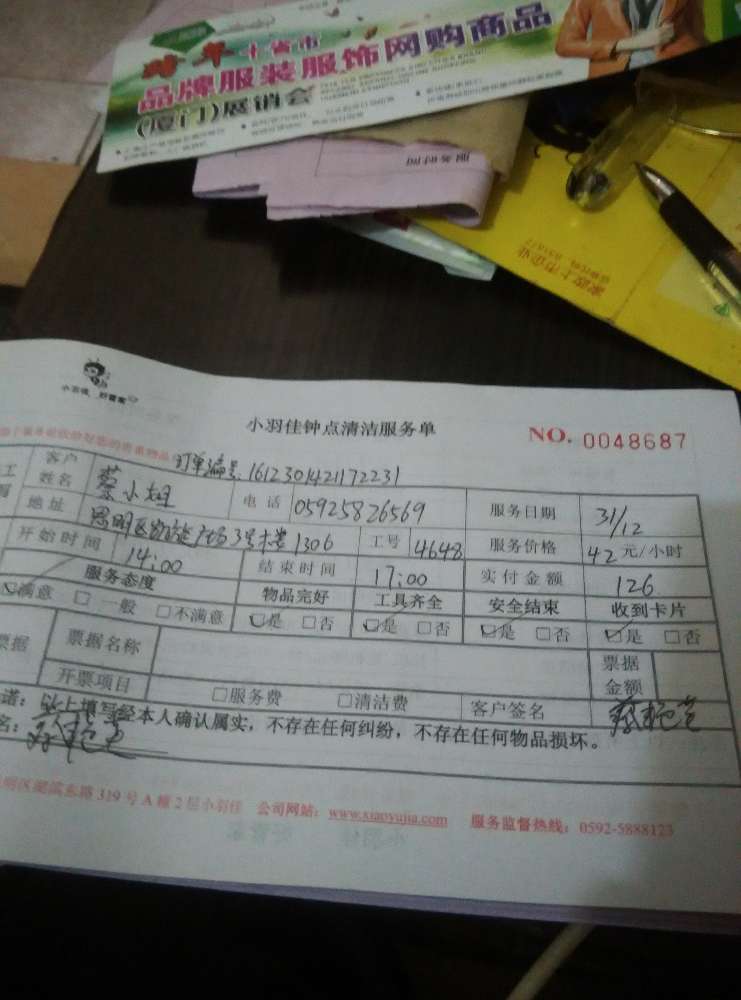 跨年十省市
品牌服装服饰网购商品
(厦门)展销会
服务时间
家政上市企业
小羽佳 好管家
小羽佳钟点清洁服务单
NO. 0048687
订单编号: 1612301421172231
客户姓名 蔡小姐 电话 05925826569 服务日期 31/12
地址 思明区凯旋广场3号楼1306 工号 4648 服务价格 42元/小时
开始时间 14:00 结束时间 17:00 实付金额 126
服务态度 物品完好 工具齐全 安全结束 收到卡片
满意 □一般 □不满意 □是 □否 □是 □否 □是 □否 □是 □否
票据 票据名称 票据金额
开票项目 □服务费 □清洁费 客户签名
诺: 以上填写经本人确认属实,不存在任何纠纷,不存在任何物品损坏。
名:
明区湖滨东路319号A幢2层小羽佳 公司网站: www.xiaoyujia.com 服务监督热线: 0592-5888123